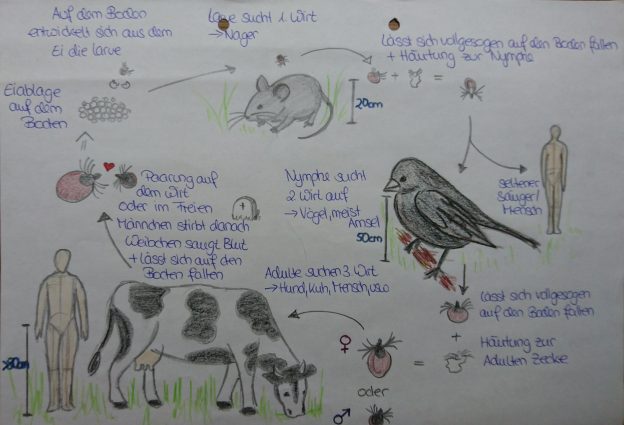 Auf dem Boden
entwickelt sich aus dem
Ei die Larve
Larve sucht 1. Wirt
→ Nager
Lässt sich vollgesogen auf den Boden fallen
+ Häutung zur Nymphe
+
=
Eiablage
auf dem
Boden
20cm
Paarung auf
dem Wirt
oder im Freien
Männchen stirbt danach
Weibchen saugt Blut
+ lässt sich auf den
Boden fallen
Nymphe sucht
2 Wirt auf
→ Vögel, meist
Amsel
50cm
seltener
Säuger/
Mensch
Adulte suchen 3. Wirt
→ Hund, Kuh, Mensch, usw
Lässt sich vollgesogen
auf den Boden fallen
+
Häutung zur
Adulten Zecke
>80cm
♀
=
oder
♂